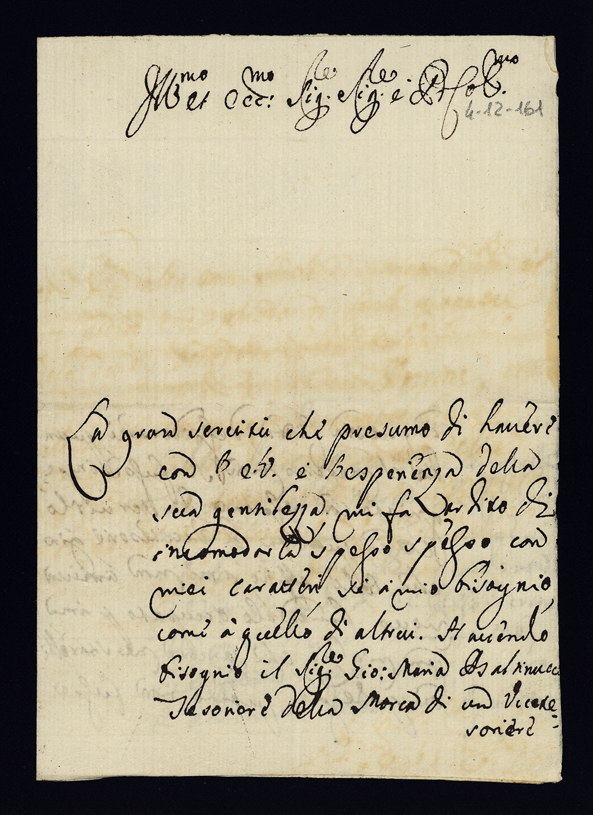 Ill.mo et Ecc: Sig.re Sig.re e P.ron Col.mo
4-12-161
La gran servitù che presumo di havere
con V. e l'esperienza della
sua gentilezza mi fa ardito di
incomodarla spesso spesso con
miei caratteri sì à mio bisognio,
come à quello di altrui. Havendo
bisognio il Sig.re Gio: Maria
Tesoriere della Marca di un Vicete=
soriere